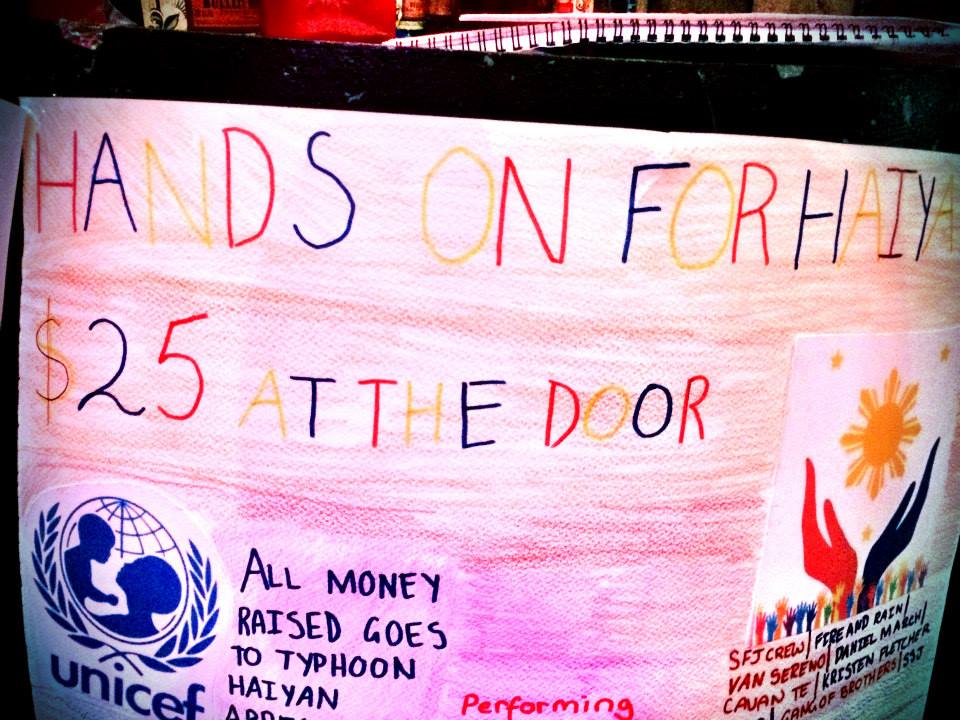 HANDS ON FOR HAIYA
$25 AT THE DOOR
unicef
ALL MONEY
RAISED GOES
TO TYPHOON
HAIYAN
Performing
SFJ CREW / FIRE AND RAIN /
VAN SERENO / DANIEL MARCH /
CAVAN TE / KRISTEN FLETCHER
GANG OF BROTHERS / SSJ